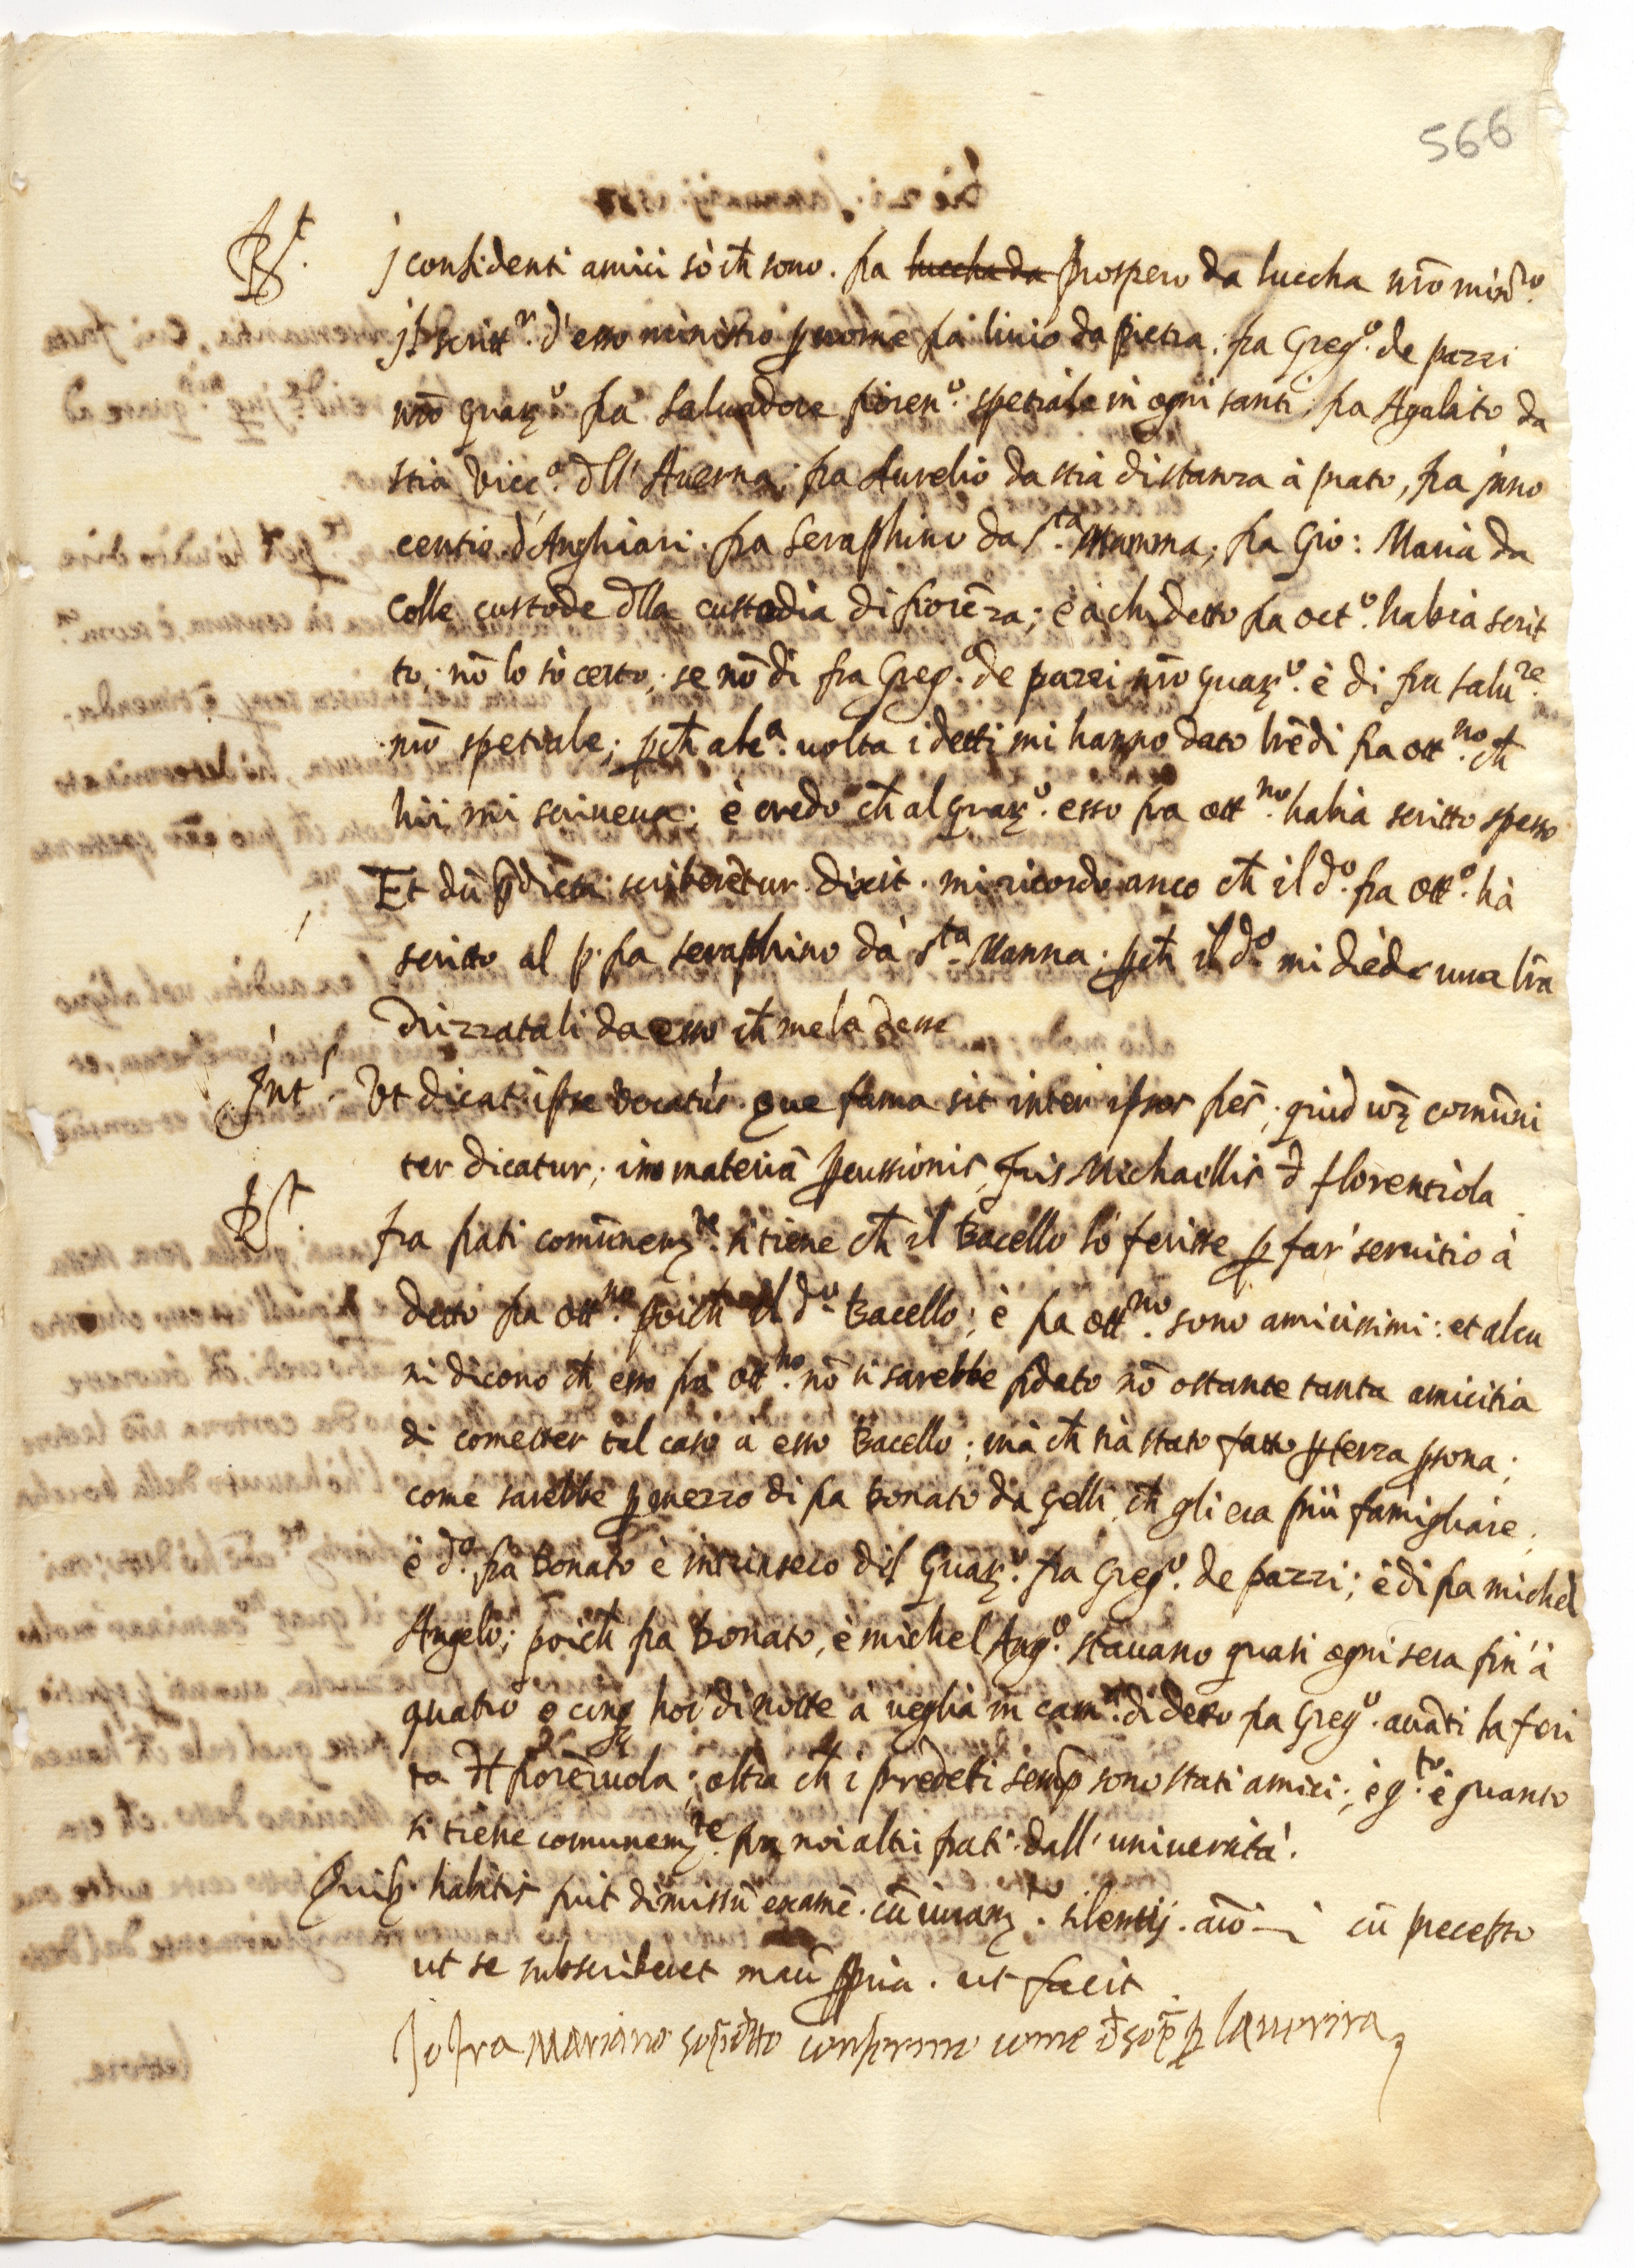 566
R.t j confidenti amici sò ch̄ sono. fra luccha da prospero da luccha nr̄o min̄ro.
jl scritt.re d'esso ministro p nome fra liuio da pietra; fra Greg.o de pazzi
nr̄o guar.o fra saluadore fioren.o spetiale in ogni santi; fra Agabito da
stia vicc.o dll' Auerna; fra Aurelio da stia di stanza à prato, fra jnno
centio d'Anghiari. fra Seraphino da S.ta Mamma; fra Gio: Maria da
Colle custode dlla custodia di fiorēza; è à chi detto fra oct.o habia scrit
to; nō lo sò certo; se nō di fra Greg.o de pazzi nr̄o guar.o è di fra salu.re
nr̄o spetiale; pch̄ alc.a uolta i detti mi hanno dato lrē di fra ott.no ch̄
lui mi scriueua; è credo ch̄ al guar.o esso fra ott.no habia scritto spesso
Et dū p̄dicta scriberetur dixit. mi ricordo anco ch̄ il d.o fra ott.o hà
scritto al p. fra seraphino dà S.ta Manna. pch̄ il d.o mi diède una lr̄a
drizzatali da esso ch̄ me la desse
Int.s Vt dicat ipse vocatus. que fama sit inter ipsos frēs; quid uē comūni
ter dicatur; in materiā pcussionis fris Michaellis d florentiola
R.t fra frati comūnem.te si tiene ch̄ il Bacello lo ferisse p far' seruitio à
detto fra ott.no poich̄ il d.o Bacello; è fra ott.no sono amicissimi: et alcu
ni dicono ch̄ esso fra ott.no nō si sarebbe fidato nō ostante tanta amicitia
di cometter tal caso a esso Bacello; mà ch̄ sia stato fatto p terza psona;
come sarebbe p mezzo di fra Bonato da gelli ch̄ gli era più famigliare;
è d.o fra Bonato è intrinseco dil Guar.o fra Greg.o de pazzi; è di fra michel
Angelo; poich̄ fra Bonato, è michel Ang.o stauano quasi ogni sera fin' à
quatro o cinq hor' di notte a ueglia in cam.ra di detto fra Greg.o auāti la feri
ta dl fiorēzuola; oltra ch̄ i predeti semp̄ sono stati amici; è q.to è quanto
si tiene comunem.te fra noi altri frati dall' uniuersità.
Quib. habitis fuit dimissū examē. cū iuram.to silentij. aūo — cū precepto
ut se subscriberet manū ppria. ut facit
Jo fra Mariano sop̄ditto confermo come d sop̄ p la uerita